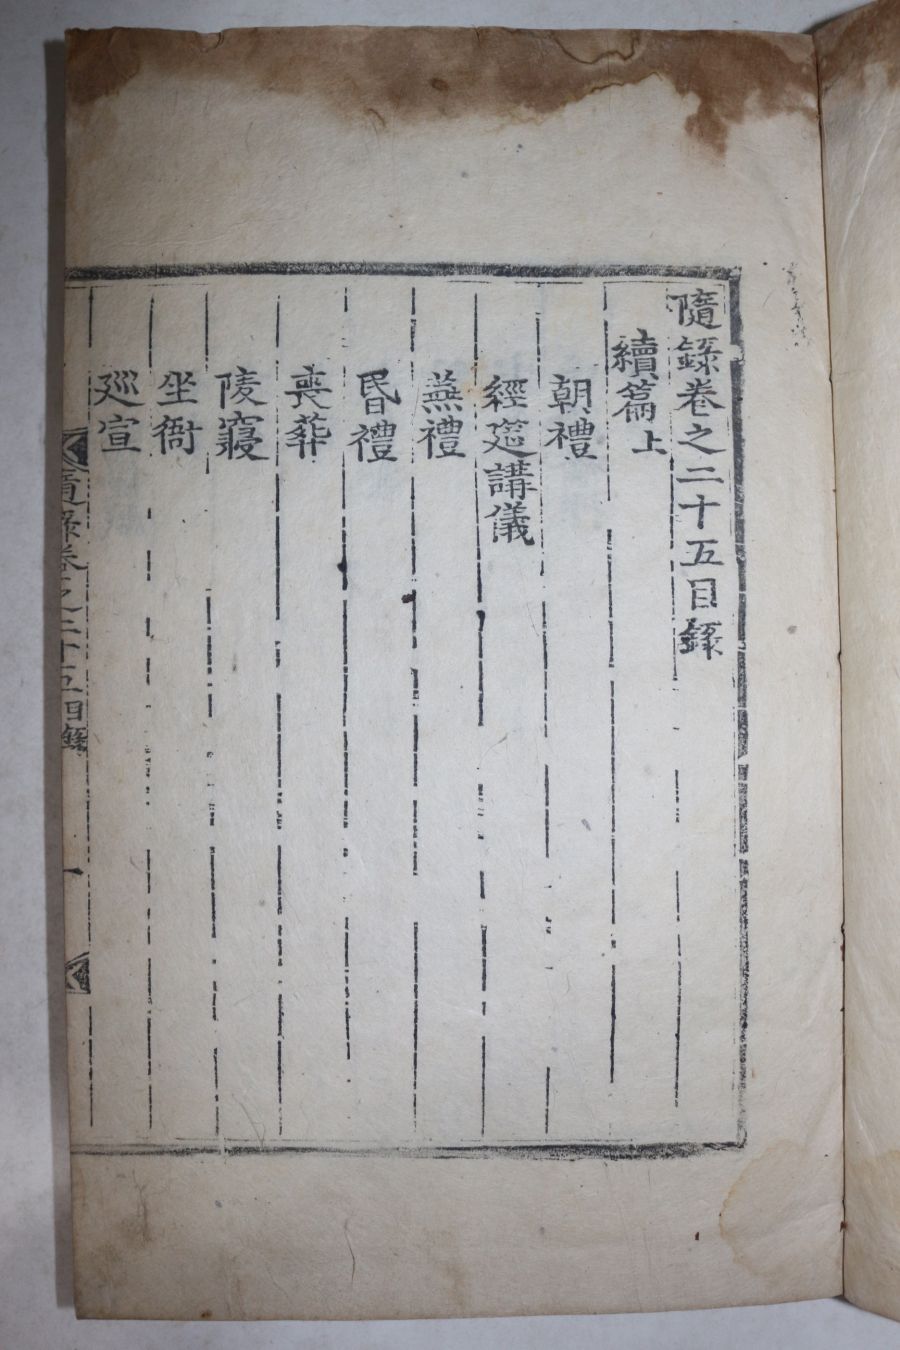 隨錄卷之二十五目錄
續篇上
朝禮
經筵講儀
燕禮
昬禮
喪葬
陵寢
坐衙
廵宣
隨錄卷之二十五目錄 一